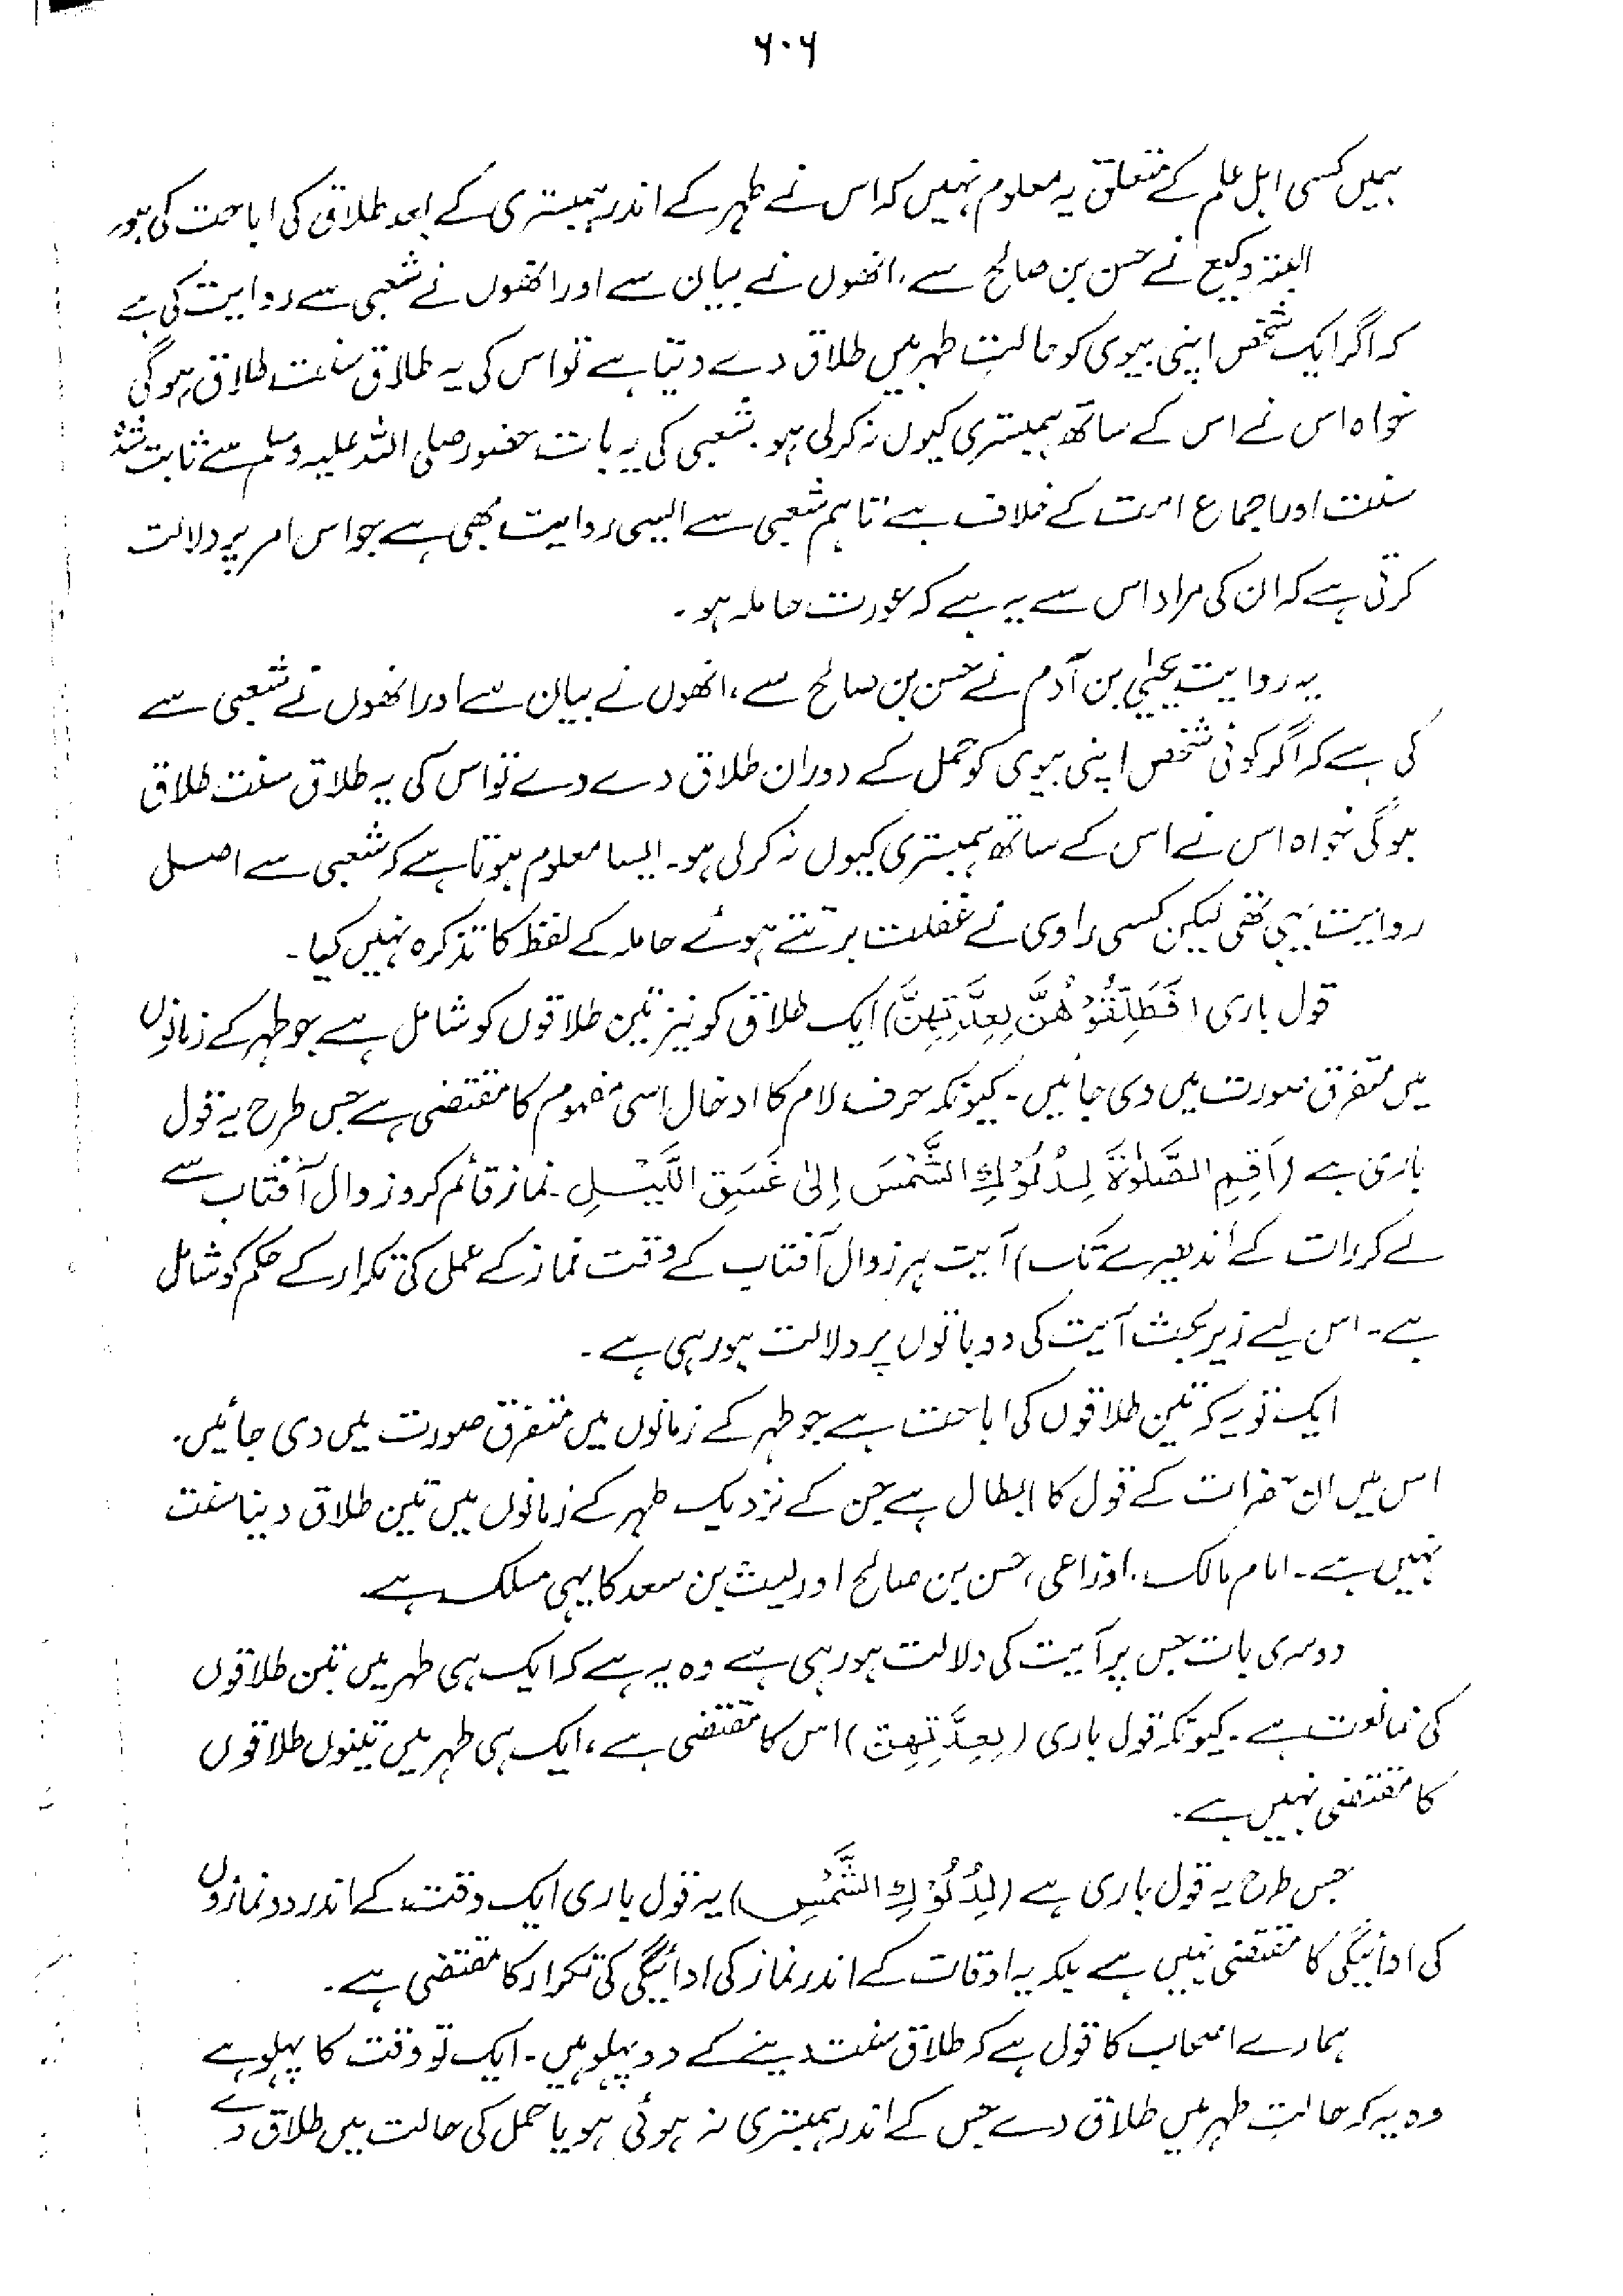 ۶۰۶
ہمیں کسی اہل علم کے متعلق یہ معلوم نہیں کہ اس نے طہر کے اندر ہمبستری کے بعد طلاق کی اباحت کی ہو۔
البتہ وکیع نے حسن بن صالح سے، انھوں نے بیان سے اور انھوں نے شعبی سے روایت کی ہے
کہ اگر ایک شخص اپنی بیوی کو حالتِ طہر میں طلاق دے دیتا ہے تو اس کی یہ طلاق سنت طلاق ہوگی
خواہ اس نے اس کے ساتھ ہمبستری کیوں نہ کر لی ہو۔ شعبی کی یہ بات حضور صلی اللہ علیہ وسلم سے ثابت شدہ
سنت اور اجماع امت کے خلاف ہے، تاہم شعبی سے ایسی روایت بھی ہے جو اس امر پر دلالت
کرتی ہے کہ ان کی مراد اس سے یہ ہے کہ عورت حاملہ ہو۔
یہ روایت یحییٰ بن آدم نے حسن بن صالح سے، انھوں نے بیان سے اور انھوں نے شعبی سے
کی ہے کہ اگر کوئی شخص اپنی بیوی کو حمل کے دوران طلاق دے دے تو اس کی یہ طلاق سنت طلاق
ہوگی خواہ اس نے اس کے ساتھ ہمبستری کیوں نہ کر لی ہو۔ ایسا معلوم ہوتا ہے کہ شعبی سے اصل
روایت یہی تھی لیکن کسی راوی نے غفلت برتتے ہوئے حاملہ کے لفظ کا تذکرہ نہیں کیا۔
قول باری (فَطَلِّقُوْهُنَّ لِعِدَّتِهِنَّ) ایک طلاق کو نیز تین طلاقوں کو شامل ہے جو طہر کے زمانوں
میں متفرق صورت میں دی جائیں۔ کیونکہ حرف لام کا ادخال اسی مفہوم کا مقتضی ہے جس طرح یہ قول
باری ہے (اَقِمِ الصَّلٰوةَ لِدُلُوْكِ الشَّمْسِ اِلٰى غَسَقِ اللَّيْلِ۔ نماز قائم کرو زوال آفتاب سے
لے کر رات کے اندھیرے تک) آیت ہر زوال آفتاب کے وقت نماز کے عمل کی تکرار کے حکم کو شامل
ہے۔ اس لیے زیر بحث آیت کی دو باتوں پر دلالت ہو رہی ہے۔
ایک تو یہ کہ تین طلاقوں کی اباحت ہے جو طہر کے زمانوں میں متفرق صورت میں دی جائیں۔
اس میں ان حضرات کے قول کا ابطال ہے جن کے نزدیک طہر کے زمانوں میں تین طلاق دینا سنت
نہیں ہے۔ امام مالک، اوزاعی، حسن بن صالح اور لیث بن سعد کا یہی مسلک ہے۔
دوسری بات جس پر آیت کی دلالت ہو رہی ہے وہ یہ ہے کہ ایک ہی طہر میں تین طلاقوں
کی ممانعت ہے۔ کیونکہ قول باری (لِعِدَّتِهِنَّ) اس کا مقتضی ہے، ایک ہی طہر میں تینوں طلاقوں
کا مقتضی نہیں ہے۔
جس طرح یہ قول باری ہے (لِدُلُوْكِ الشَّمْسِ) یہ قول باری ایک وقت کے اندر دو نمازوں
کی ادائیگی کا مقتضی نہیں ہے بلکہ یہ اوقات کے اندر نماز کی ادائیگی کی تکرار کا مقتضی ہے۔
ہمارے اصحاب کا قول ہے کہ طلاق سنت دینے کے دو پہلو ہیں۔ ایک تو وقت کا پہلو ہے
وہ یہ کہ حالتِ طہر میں طلاق دے جس کے اندر ہمبستری نہ ہوئی ہو یا حمل کی حالت میں طلاق دے